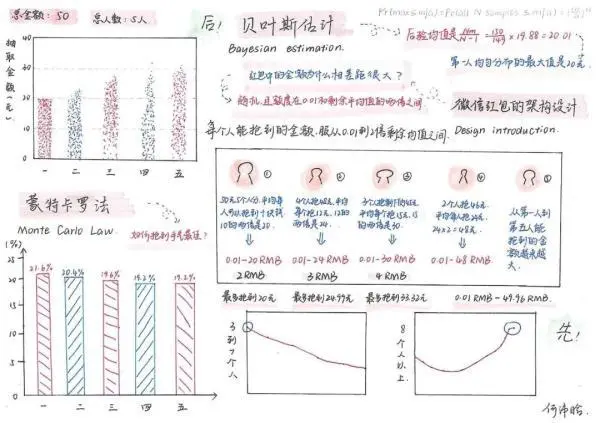 总金额: 50 总人数: 5人
抽取金额(元)
40
30
20
10
0
一 二 三 四 五
后! 贝叶斯估计
Bayesian estimation.
后验均值是
× 19.88 = 20.01
第一人均匀分布的最大值是20元.
红包中的金额为什么相差距很大?
随机,且额度在0.01和剩余平均值的两倍之间.
微信红包的架构设计
Design introduction.
每个人能抢到的金额,服从0.01到2倍剩余均值之间.
① ② ③ ④ ⑤
50元5个人分,平均每
人可以抢到十块钱
10的两倍是20.
↓
0.01-20 RMB
2 RMB
4个人抢48元,平均
每个抢12元. 12的
两倍是24.
↓
0.01-24 RMB
3 RMB
3个人抢剩下的45元
平均每个抢15元. 15
的两倍是30.
↓
0.01-30 RMB
4 RMB
2个人抢48元.
平均每人抢24元.
24×2=48元.
↓
0.01-48 RMB
从第一人到
第五人能
抢到的金
额越来越
大.
最多抢到20元 最多抢到24.99元 最多抢到33.32元 0.01 RMB-49.96 RMB
蒙特卡罗法
Monte Carlo Law.
如何抢到手气最佳?
(%)
25
20
15
10
5
0
21.6% 20.4% 19.6% 19.2% 19.2%
一 二 三 四 五
3到7个人
8个人以上.
先!